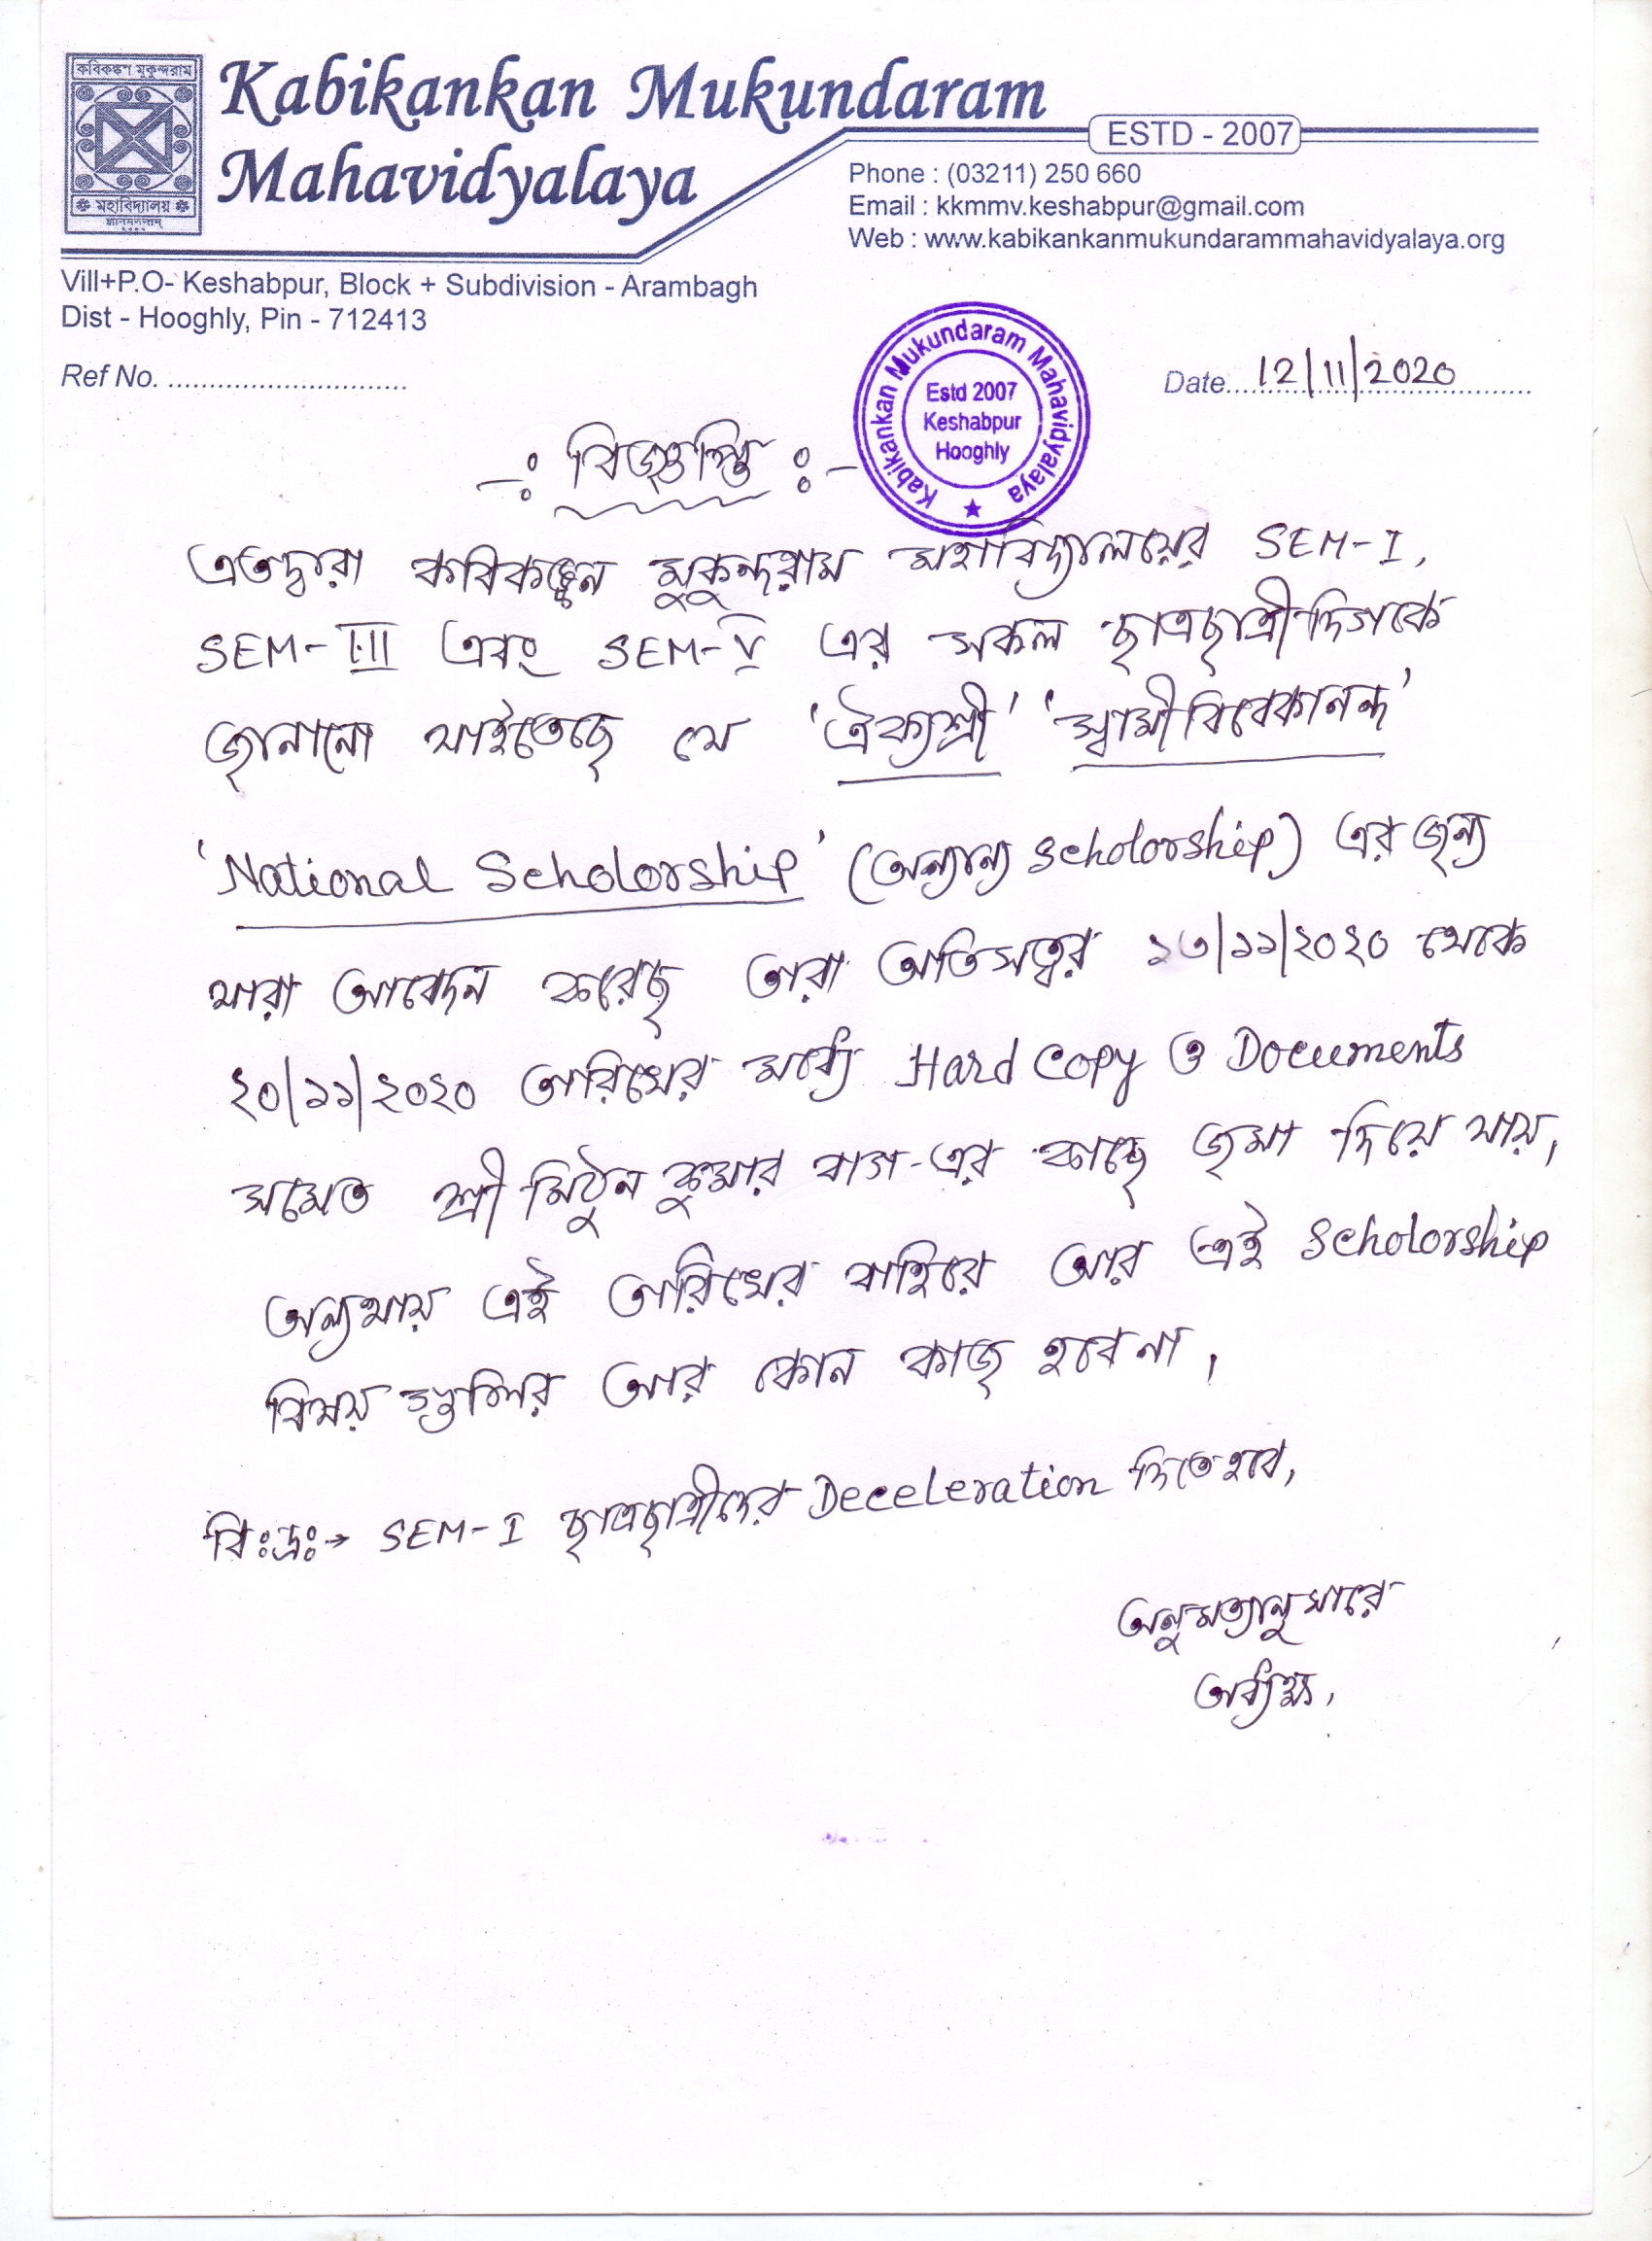 কবিকঙ্কণ মুকুন্দরাম
মহাবিদ্যালয়
Kabikankan Mukundaram
Mahavidyalaya
ESTD - 2007
Phone : (03211) 250 660
Email : kkmmv.keshabpur@gmail.com
Web : www.kabikankanmukundarammahavidyalaya.org
Vill+P.O- Keshabpur, Block + Subdivision - Arambagh
Dist - Hooghly, Pin - 712413
Ref No. ..............................
Date....12/11/2020....
Kabikankan Mukundaram Mahavidyalaya
Estd 2007
Keshabpur
Hooghly
-: বিজ্ঞপ্তি :-
এতদ্বারা কবিকঙ্কন মুকুন্দরাম মহাবিদ্যালয়ের SEM-I,
SEM-III এবং SEM-V এর সকল ছাত্রছাত্রীদিগকে
জানানো যাইতেছে যে 'ঐক্যশ্রী' 'স্বামী বিবেকানন্দ'
'National Scholorship' (অন্যান্য scholorship) এর জন্য
যারা আবেদন করেছে তারা অতিসত্বর ১৩/১১/২০২০ থেকে
২০/১১/২০২০ তারিখের মধ্যে Hard Copy ও Documents
সমেত শ্রী মিঠুন কুমার বাগ-এর কাছে জমা দিয়ে যায়,
অন্যথায় এই তারিখের বাহিরে আর এই Scholorship
বিষয় গুলির আর কোন কাজ হবে না,
বিঃদ্রঃ→ SEM-I ছাত্রছাত্রীদের Deceleration দিতে হবে,
অনুমত্যানুসারে
অধ্যক্ষ,